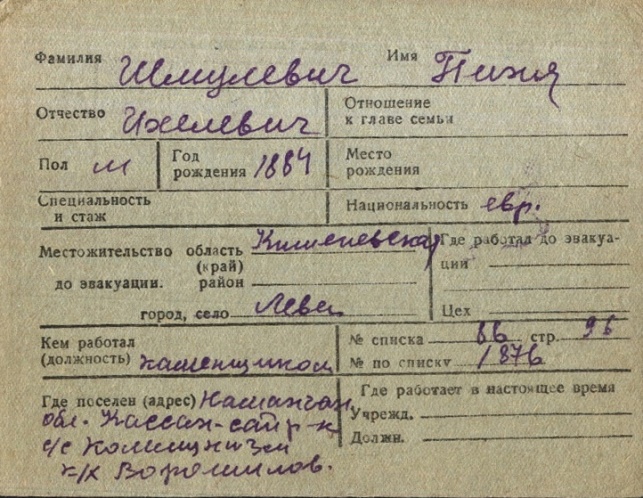 Фамилия Шмулевич Имя Пиня
Отчество Ихелевич Отношение к главе семьи
Пол м Год рождения 1884 Место рождения
Специальность и стаж Национальность евр.
Местожительство область Кишеневская Где работал до эвакуа-
(край) ции
до эвакуации. район
город, село Цех
Кем работал № списка 86 стр. 96
(должность) каменщиком № по списку 1876
Где поселен (адрес) Наманган. Где работает в настоящее время
обл. Кассан-сай р-н Учрежд.
с/с Коммунизм Должн.
к/х Ворошилов.